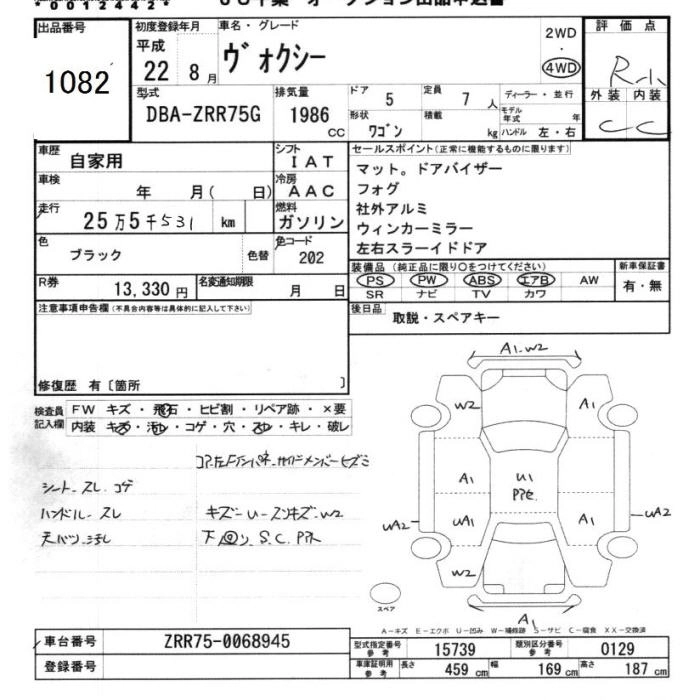 *00124424*
出品番号 初度登録年月 車名・グレード 2WD ・ 4WD 評価点
1082 平成 22 8月 ヴォクシー
型式 DBA-ZRR75G 排気量 1986 cc ドア 5 定員 7人 ディーラー・並行 外装 内装
形状 ワゴン 積載 kg モデル年式 年 ハンドル 左・右 C C
車歴 自家用 シフト IAT セールスポイント(正常に機能するものに限ります)
車検 年 月( 日) 冷房 AAC マット。ドアバイザー
フォグ
走行 25万5千531 km 燃料 ガソリン 社外アルミ
ウィンカーミラー
色 ブラック 色替 色コード 202 左右スラーイドドア
R券 13,330円 名変通知期限 月 日 装備品(純正品に限り○をつけてください) 新車保証書
PS PW ABS エアB AW 有・無
SR ナビ TV カワ
注意事項申告欄(不具合内容等は具体的に記入して下さい) 後日品 取説・スペアキー
修復歴 有〔箇所 〕
検査員記入欄 FW キズ・飛石・ヒビ割・リペア跡・×要
内装 キズ・汚レ・コゲ・穴・スレ・キレ・破レ
シート-スレ.コゲ
ハンドル-スレ キズ-U-スリキズ-W2
天バリ-汚レ 下回り S.C.
A1.W2
W2 A1
A1 U1
UA1 A1
UA2 UA2
W2
A1
スペア
A-キズ E-エクボ U-凹み W-補修跡 S-サビ C-腐食 XX-交換済
車台番号 ZRR75-0068945 型式指定番号 参考 15739 類別区分番号 参考 0129
登録番号 車庫証明用 参考 長さ 459 cm 幅 169 cm 高さ 187 cm